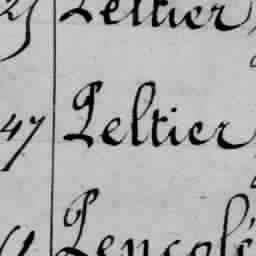 25 Peltier
47 Peltier
Pencolé